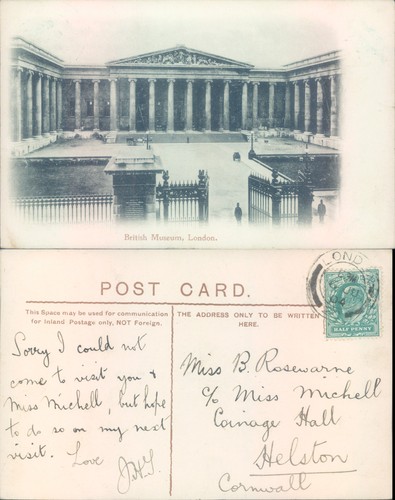 British Museum, London.
POST CARD.
This Space may be used for communication
for Inland Postage only, NOT Foreign.
THE ADDRESS ONLY TO BE WRITTEN
HERE.
LOND
HALF PENNY
Sorry I could not
come to visit you &
Miss Michell, but hope
to do so on my next
visit. Love
Miss B. Rosewarne
c/o Miss Michell
Coinage Hall
Helston
Cornwall